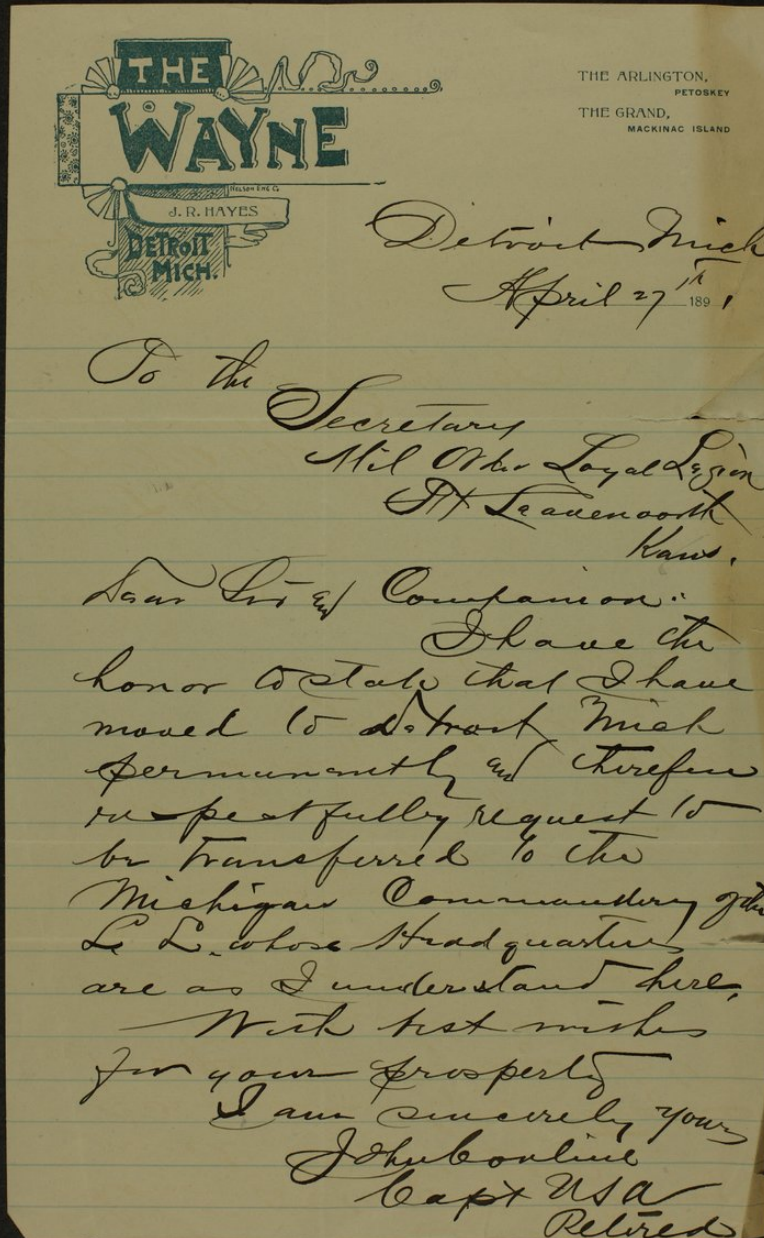 THE
WAYNE
Nelson Eng Co
J. R. HAYES
DETROIT
MICH.
THE ARLINGTON,
PETOSKEY
THE GRAND,
MACKINAC ISLAND
Detroit Mich
April 27th 1891
To the
Secretary
Mil Order Loyal Legion
Ft Leavenworth
Kans.
Dear Sir and Companion:
I have the
honor to state that I have
moved to Detroit Mich
permanently and therefore
respectfully request to
be transferred to the
Michigan Commandery of the
L. L. whose Headquarters
are as I understand here.
With best wishes
for your prosperty
I am sincerely yours
John Conline
Capt USA
Retired